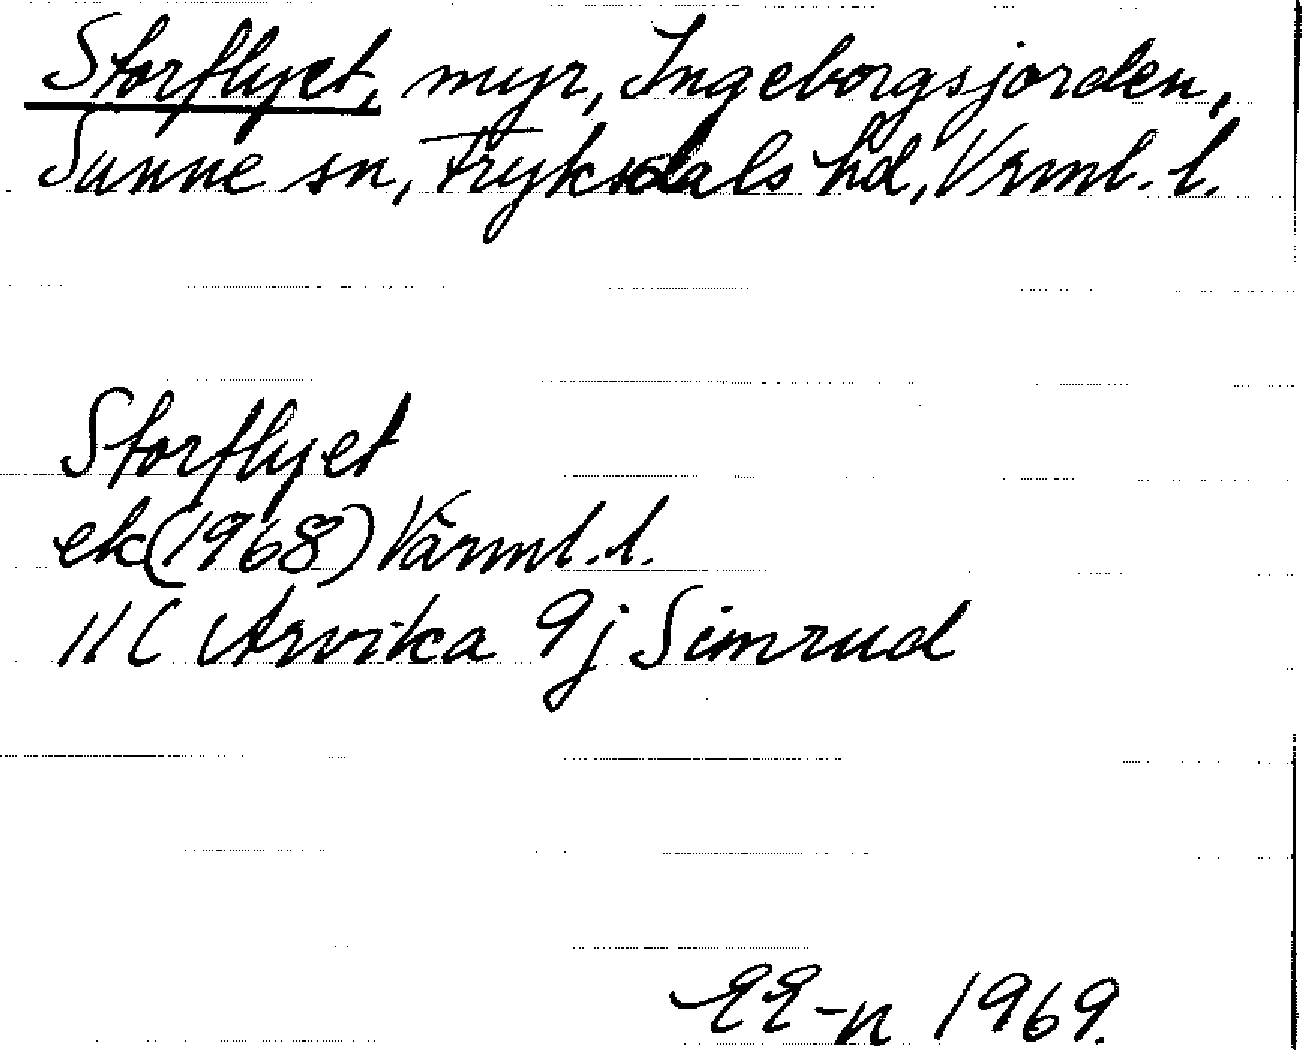 Storflyet, myr, Ingeborgsjorden,
Sunne sn, Fryksdals hd, Vrml. l.
Storflyet
ek (1968) Värml. l.
11C Arvika 9j Simrud
EE-n 1969.